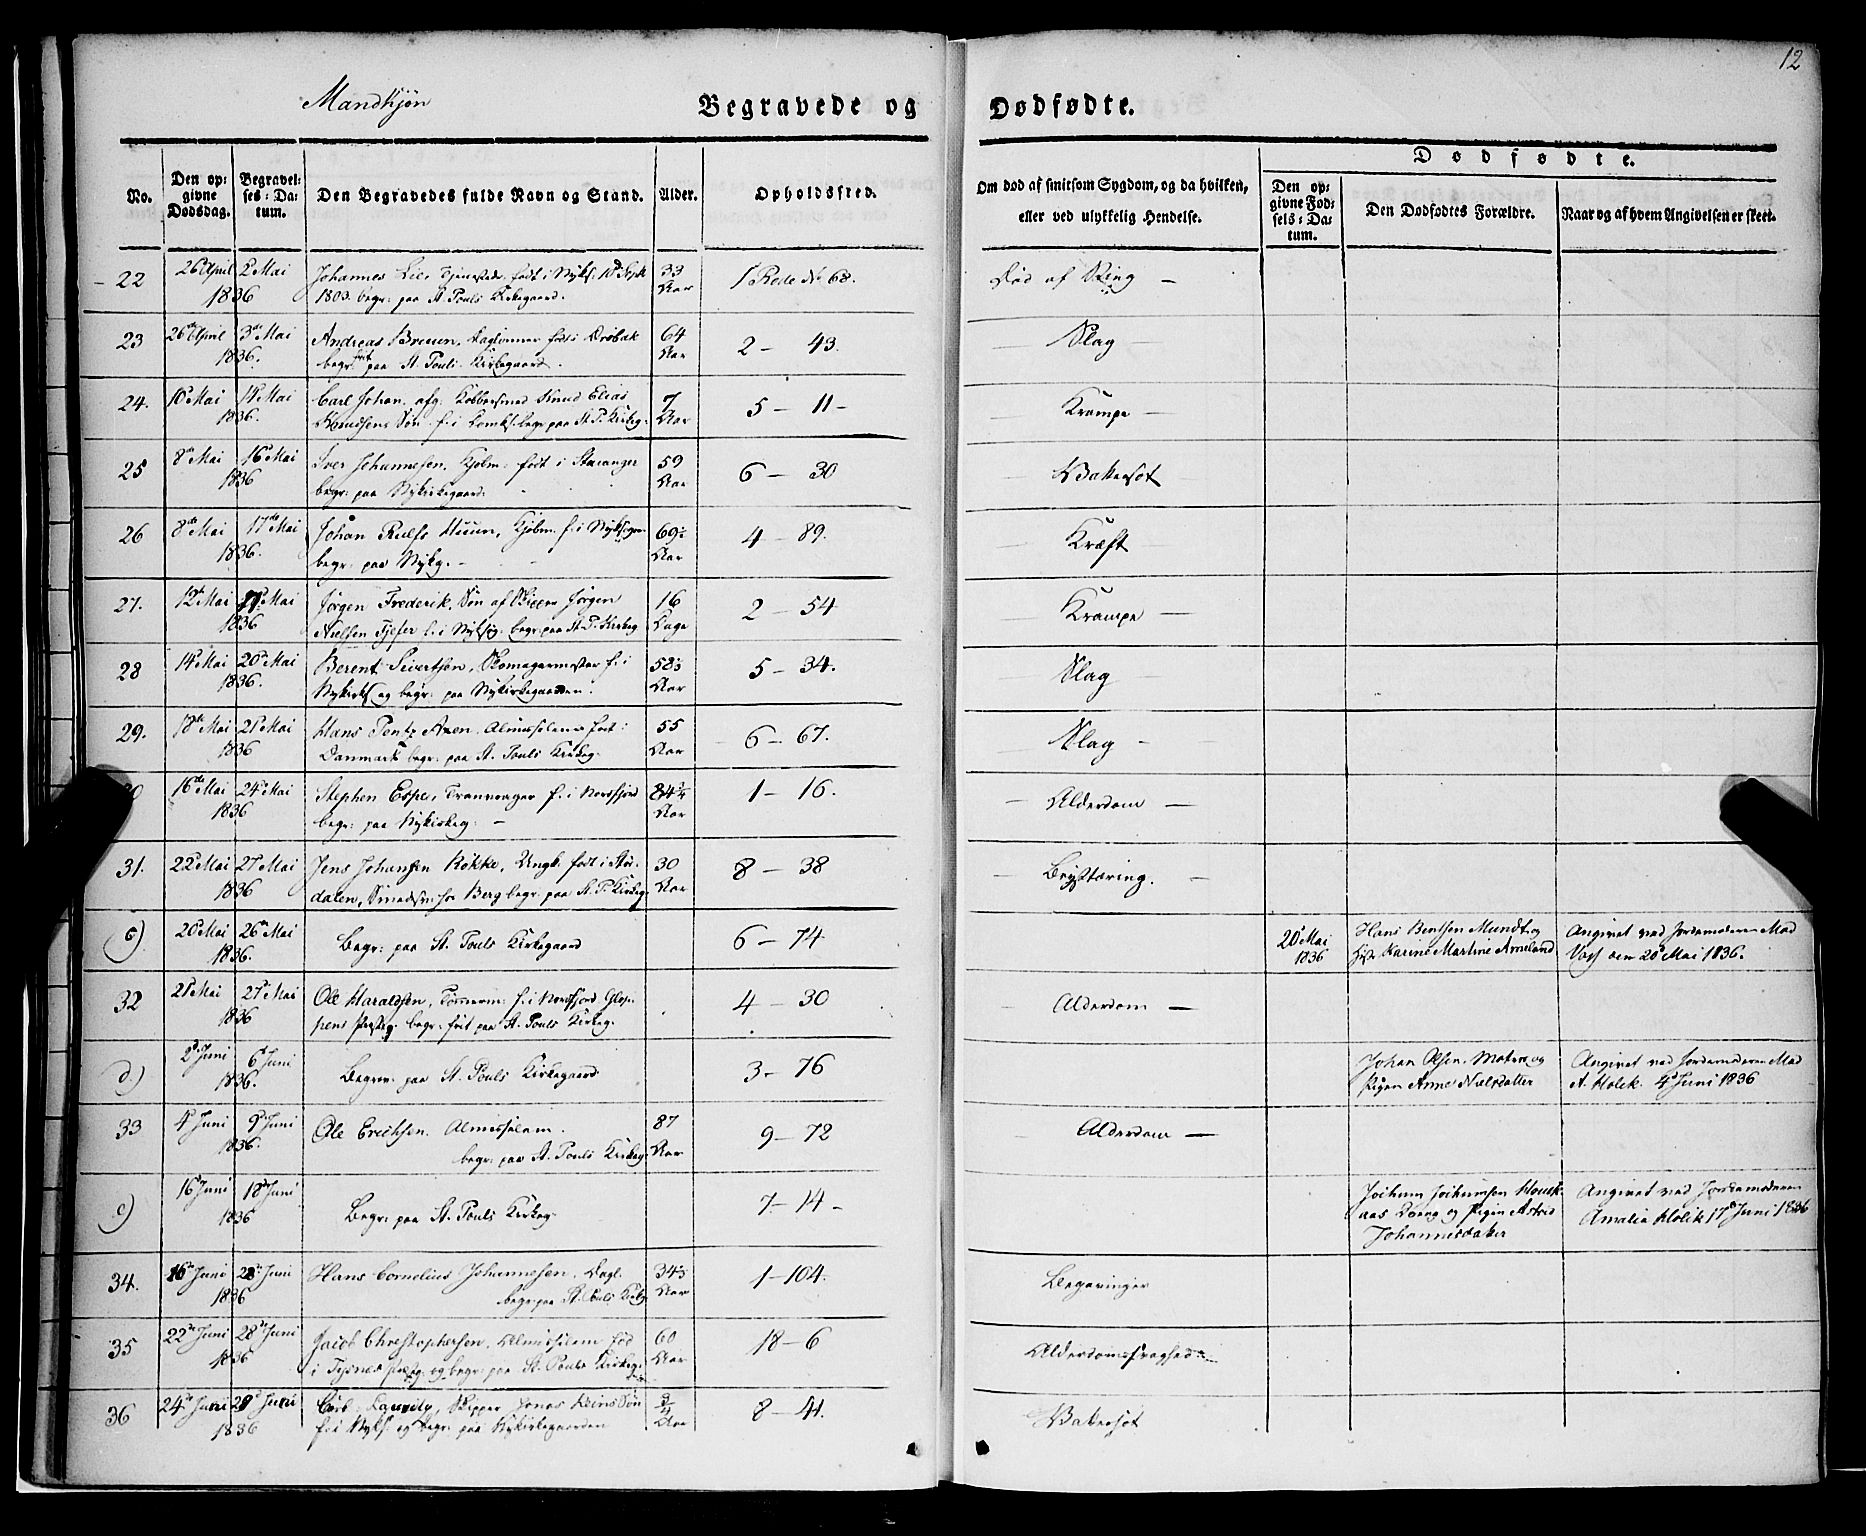 12
Mandkjøn
Begravede og Dødfødte.
No.
Den opgivne Dødsdag.
Begravelses-Datum.
Den Begravedes fulde Navn og Stand.
Alder.
Opholdssted.
Om død af smitsom Sygdom, og da hvilken,
eller ved ulykkelig Hendelse.
Dødfødte.
Den opgivne Fødsels-Datum.
Den Dødfødtes Forældre.
Naar og af hvem Angivelsen er skeet.
22 26 April 2 Mai Johannes Lie, født i Nyks: 33 1 Rode No 68. Død af
1836 1803. begr: paa St. Pouls Kirkegaard. Aar
23 26de April 3de Mai Andreas Breuen, Dagl født i Drøbak 64 2 – 43. – Slag –
1836. begr: frit paa St. Pouls Kirkegaard. Aar
24. 10 Mai 14 Mai Carl Johan, afg. Kobbersmed Knud Elias 7 5 – 11 – – Krampe –
1836. Knudsens Søn f. i Domks. begr: paa St. P. Kirkeg. Aar
25 8de Mai 16 Mai Iver Johannesen, Kjøbm: født i Stavanger 59 6 – 30 – Vattersot
1836 begr: paa Nykirkegaard. Aar
26 8de Mai 17de Mai Johan Rulfs Kjøbm. f. i Nyksogn 69½ 4 – 89. – Kræft –
1836. begr: paa Nykg. – Aar
27. 12 Mai Mai Jørgen Frederik, Søn af Jørgen 16 2 – 54 – Krampe –
1836 Nielsen f. i begr: paa St. P. Kirkeg. Dage
28 14 Mai 20 Mai Berent Sivertsøn, Skomagermester f. i 58½ 5 – 34. – Slag –
1836. Nykirks og begr: paa Nykirkegaarden. Aar
29. 18de Mai 21 Mai Hans Pentz Almisselem født i 55 – 6 – 67. – Slag –
1836 Danmark begr: paa St. Pouls Kirkeg. Aar
16de Mai 24 Mai Stephen Espe, f. i Nordfjord 84 1 – 16. – Alderdom –
1836 begr: paa Nykirkeg: – Aar
31. 22 Mai 27 Mai Jens Johansen Røkke, Ungk. født i Stør- 30 8 – 38 – Brysttæring. –
1836 dalen, hos Berg begr: paa St. P. Kirkeg. Aar
c) 20 Mai 26 Mai Begr: paa St. Pouls Kirkegaard 6 – 74 20 Mai Hans Bentsen Mundt og Angivet ved Jordemoderen Mad
1836. 1836 Karine Martine Arneland Voss den 20 Mai 1836.
32 21 Mai 27 Mai Ole Haraldsen, Tømmerm: f. i Nordfjord Glop- 4 – 30 – Alderdom –
1836 pens Præsteg. begr: frit paa St. Pouls Kirkeg.
d.) 2 Juni 6 Juni Begrav: paa St. Pouls Kirkegaard 3 – 76 Johan Olsen, Matros og Angivet ved Jordemoderen Mad
1836. Pigen Anne Nielsdatter A. Holck. 4 Juni 1836
33 4 Juni 9 Juni Ole Erichsen. Almisselem. 87 9 – 72 – Alderdom –
1836. begr: paa St. Pouls Kirkeg. Aar
e) 16 Juni 18 Juni Begr: paa St. Pouls Kirkeg. 7 – 14 – Jochum Jochumsen Angivet ved Jordemoderen
1836 Dreng og Pigen Astrid Amalia Holck 17 Juni 1836
Johannesdatter
34. 16 Juni Juni Hans Cornelius Johannesen, Dagl. 34½ 1 – 104. Begavinger
1836 begr: paa St. Pouls Kirkg. Aar
35 22de Juni 28de Juni Jacob Christophersen, Almisselem fød 60 18 – 6 Alderdomssvaghed
1836 i Tysnes Præsteg: og begr: paa St. Pouls Kirkeg. Aar
36 24de Juni Juni Skipper Jonas Søn 3/4 8 – 41. Vattersot
1836 f. i Nyks. og begr: paa Nykirkegaarden Aar